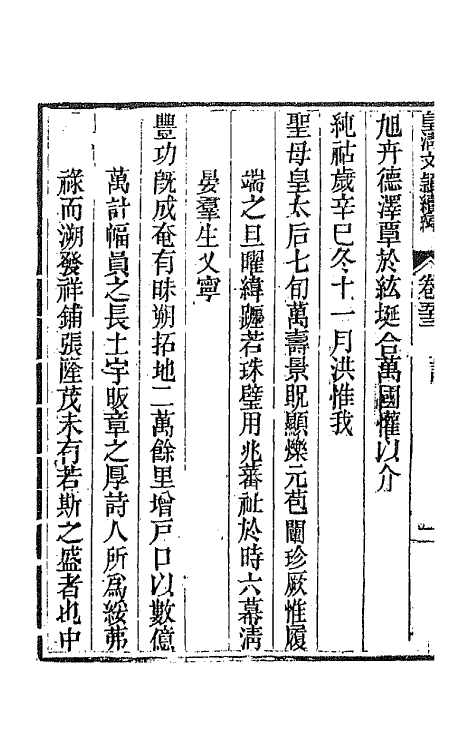 皇清文頴續編 卷
旭卉德澤覃於紘埏合萬國懽以介
純祜歲辛巳冬十一月洪惟我
聖母皇太后七旬萬壽景貺顯爍元苞闡珍厥惟履
端之旦曜緯躔若珠璧用兆蕃祉於時六幕淸
晏羣生乂寧
豐功旣成奄有昧朔拓地二萬餘里增戸口以數億
萬計幅員之長土宇昄章之厚詩人所爲綏茀
祿而溯發祥鋪張隆茂未有若斯之盛者也中